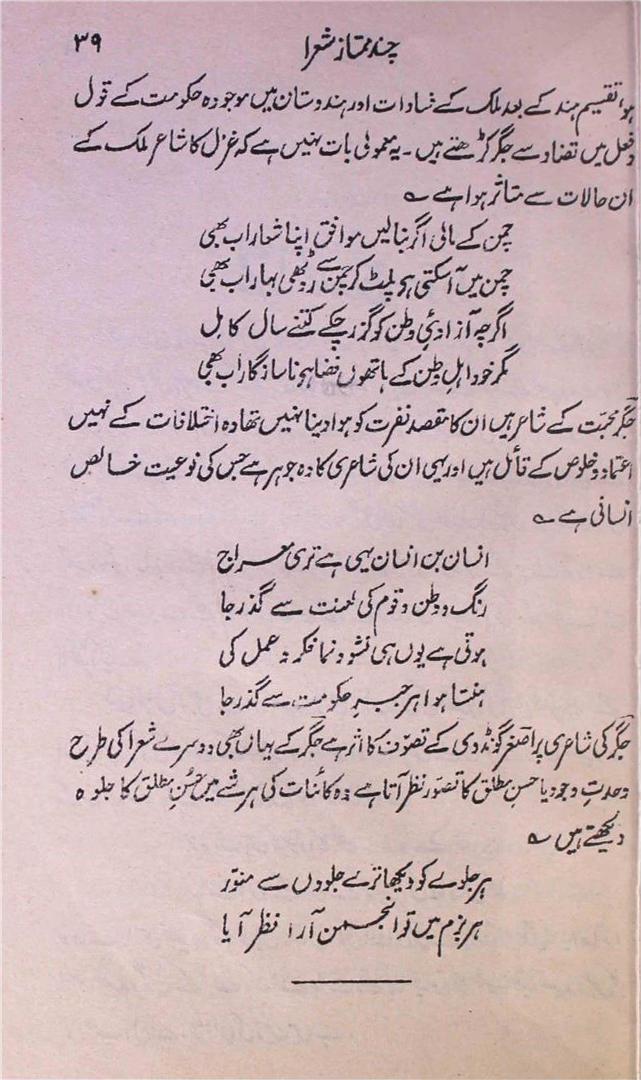 چند ممتاز شعرا ۳۹
ہوا تقسیم ہند کے بعد ملک کے فسادات اور ہندوستان میں موجودہ حکومت کے قول
و فعل میں تضاد سے جگر کڑھتے ہیں۔ یہ معمولی بات نہیں ہے کہ غزل کا شاعر ملک کے
ان حالات سے متاثر ہوا ہے ؎
چمن کے مالی اگر بنالیں موافق اپنا شعار اب بھی
چمن میں آسکتی ہو پلٹ کر چمن سے روٹھی بہار اب بھی
اگرچہ آزادئِ وطن کو گزر چکے کتنے سال کامل
مگر خود اہلِ وطن کے ہاتھوں فضا ہو ناسازگار اب بھی
جگر محبت کے شاعر ہیں ان کا مقصد نفرت کو ہوا دینا نہیں تھا وہ اختلافات کے نہیں
اعتماد و خلوص کے قائل ہیں اور یہی ان کی شاعری کا وہ جوہر ہے جس کی نوعیت خالص
انسانی ہے ؎
انسان بن انسان یہی ہے تری معراج
رنگ و وطن و قوم کی لعنت سے گذر جا
ہوتی ہے یوں ہی نشو و نما فکر و عمل کی
ہنستا ہوا ہر جبرِ حکومت سے گذر جا
جگر کی شاعری پر اصغر گونڈوی کے تصوّف کا اثر ہے جگر کے یہاں بھی دوسرے شعرا کی طرح
وحدتِ وجود یا حسنِ مطلق کا تصوّر نظر آتا ہے وہ کائنات کی ہر شے میں حُسنِ مطلق کا جلوہ
دیکھتے ہیں ؎
ہر جلوے کو دیکھا ترے جلووں سے منوّر
ہر بزم میں تو انجمن آرا نظر آیا